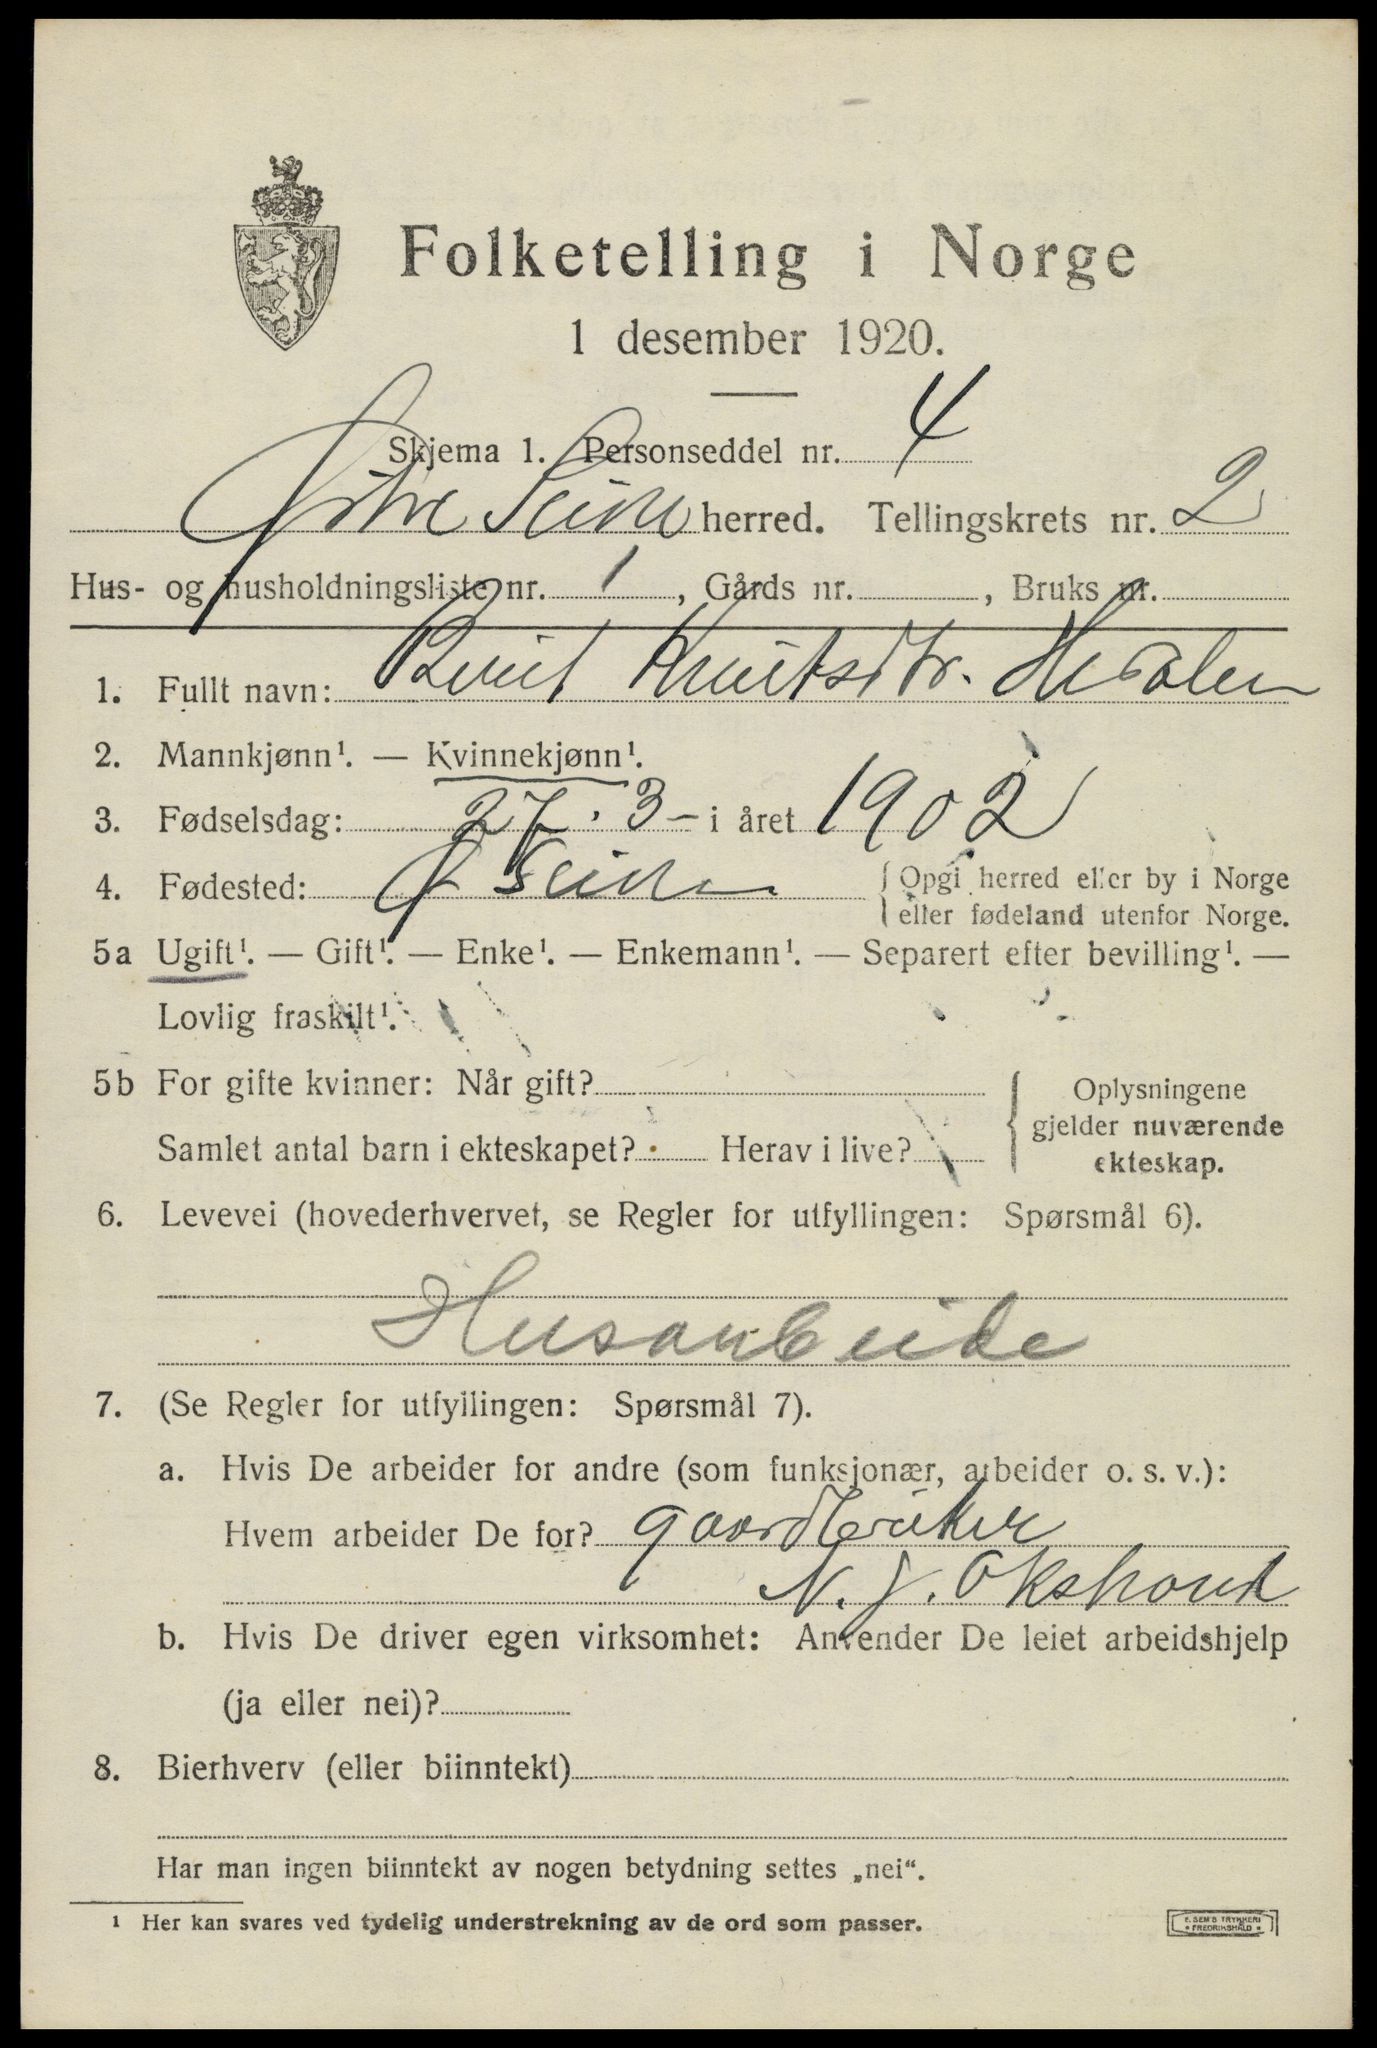 Folketelling i Norge
1 desember 1920.
Skjema 1. Personseddel nr. 4
Østre Slidre herred. Tellingskrets nr. 2
Hus- og husholdningsliste nr. 1, Gårds nr. , Bruks nr.
1. Fullt navn: Berit Knutsdtr.
2. Mannkjønn¹. — Kvinnekjønn¹.
3. Fødselsdag: 27. 3 - i året 1902
4. Fødested: Ø Slidre { Opgi herred eller by i Norge
eller fødeland utenfor Norge.
5a Ugift¹. — Gift¹. — Enke¹. — Enkemann¹. — Separert efter bevilling¹. —
Lovlig fraskilt¹.
5b For gifte kvinner: Når gift?
Samlet antal barn i ekteskapet? Herav i live?
Oplysningene
gjelder nuværende
ekteskap.
6. Levevei (hovederhvervet, se Regler for utfyllingen: Spørsmål 6).
Husarbeide
7. (Se Regler for utfyllingen: Spørsmål 7).
a. Hvis De arbeider for andre (som funksjonær, arbeider o. s. v.):
Hvem arbeider De for? gaardbruker
N. J. Okshovd
b. Hvis De driver egen virksomhet: Anvender De leiet arbeidshjelp
(ja eller nei)?
8. Bierhverv (eller biinntekt)
Har man ingen biinntekt av nogen betydning settes „nei“.
¹ Her kan svares ved tydelig understrekning av de ord som passer.
E. SEM'S TRYKKERI
FREDRIKSHALD